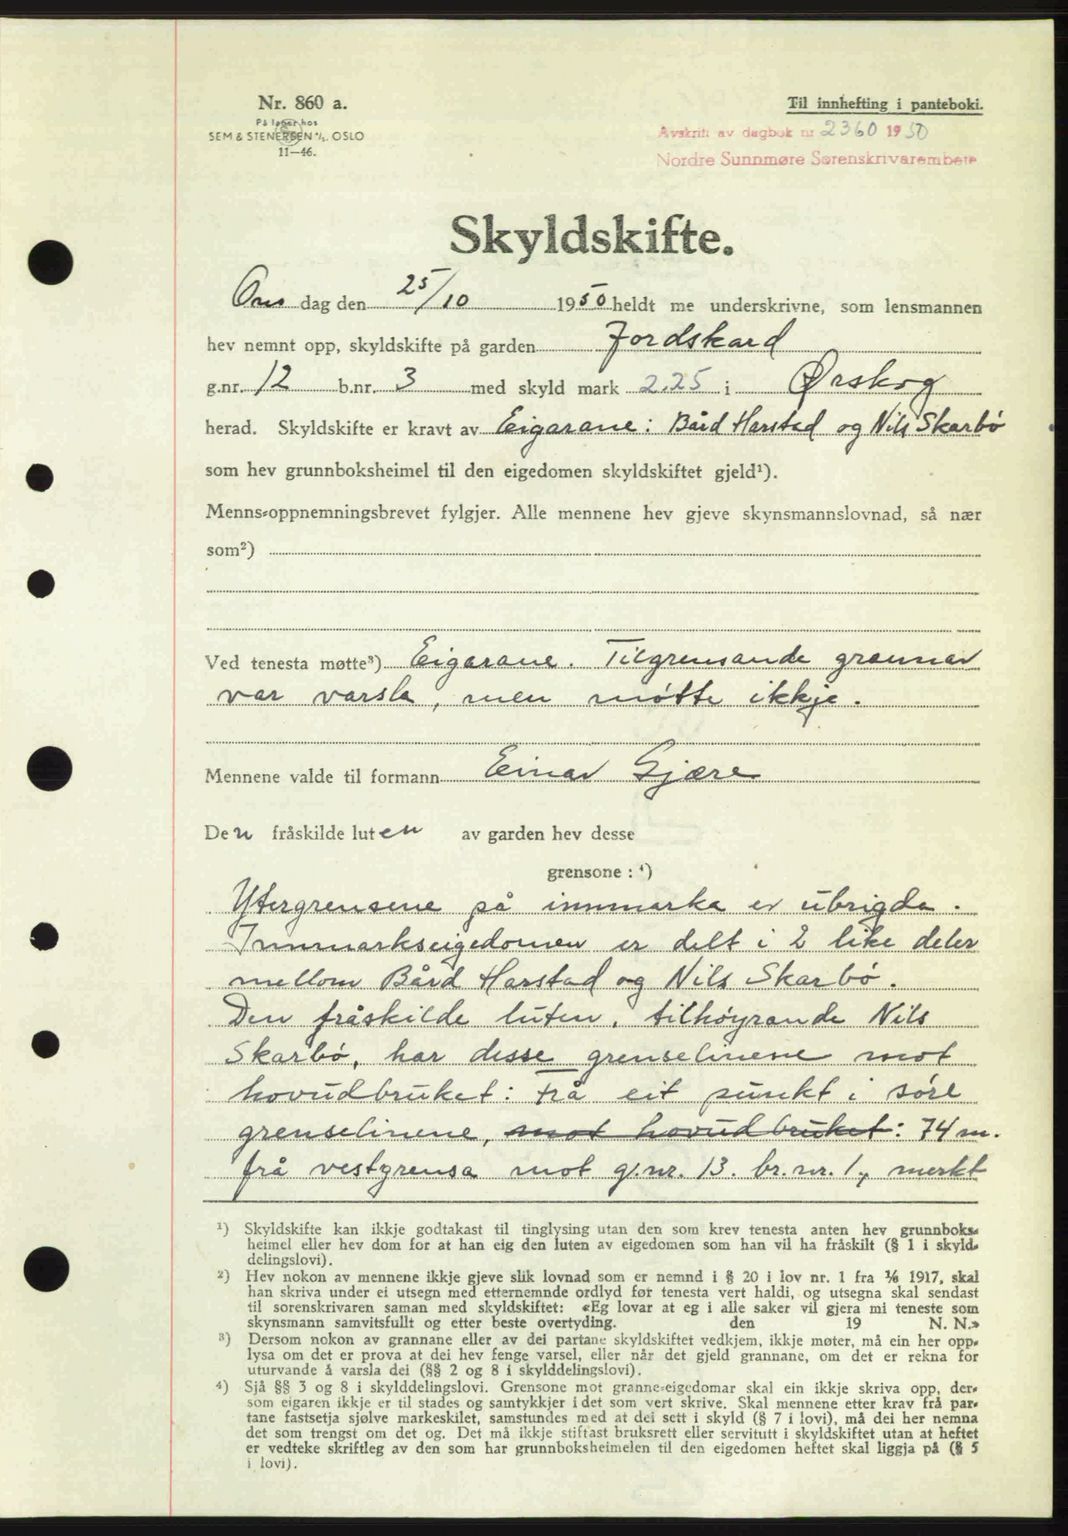 Nr. 860 a.
På lager hos
SEM & STENERSEN A/S. OSLO
11—46.
Til innhefting i panteboki.
Avskrift av dagbok nr 2360 1950
Nordre Sunnmøre Sorenskrivarembete
Skyldskifte.
Ons dag den 25/10 1950 heldt me underskrivne, som lensmannen
hev nemnt opp, skyldskifte på garden Jordskard
g.nr. 12 b.nr. 3 med skyld mark 2.25 i Ørskog
herad. Skyldskifte er kravt av Eigarane: Bård Harstad og Nils Skarbø
som hev grunnboksheimel til den eigedomen skyldskiftet gjeld¹).
Menns-oppnemningsbrevet fylgjer. Alle mennene hev gjeve skynsmannslovnad, så nær
som²)
Ved tenesta møtte³) Eigarane. Tilgrensande grannar
var varsla, men møtte ikkje.
Mennene valde til formann Einar Gjære
Den fråskilde luten av garden hev desse
grensone: ⁴)
Ytergrensene på innmarka er ubrigda.
Innmarkseigedomen er delt i 2 like deler
mellom Bård Harstad og Nils Skarbø.
Den fråskilde luten, tilhøyrande Nils
Skarbø, har desse grenselinene mot
hovudbruket: Frå eit punkt i søre
grenselinene, mot hovudbruket: 74 m.
frå vestgrensa mot g.nr. 13. br.nr. 1, merkt
¹) Skyldskifte kan ikkje godtakast til tinglysing utan den som krev tenesta anten hev grunnboks-
heimel eller hev dom for at han eig den luten av eigedomen som han vil ha fråskilt (§ 1 i skyld-
delingslovi).
²) Hev nokon av mennene ikkje gjeve slik lovnad som er nemnd i § 20 i lov nr. 1 fra 1/6 1917, skal
han skriva under ei utsegn med etternemnde ordlyd før tenesta vert haldi, og utsegna skal sendast
til sorenskrivaren saman med skyldskiftet: «Eg lovar at eg i alle saker vil gjera mi teneste som
skynsmann samvitsfullt og etter beste overtyding. den 19 N. N.»
³) Dersom nokon av grannane eller av dei partane skyldskiftet vedkjem, ikkje møter, må ein her opp-
lysa om det er prova at dei hev fenge varsel, eller når det gjeld grannane, om det er rekna for
uturvande å varsla dei (§§ 2 og 8 i skylddelingslovi).
⁴) Sjå §§ 3 og 8 i skylddelingslovi. Grensone mot granne-eigedomar skal ein ikkje skriva opp, der-
som eigaren ikkje er til stades og samtykkjer i det som vert skrive. Skal mennene etter krav frå par-
tane fastsetja sjølve markeskilet, samstundes med at dei sett i skyld (§ 7 i lovi), må dei her nemna
det som trengst om det og. Det må ikkje stiftast bruksrett eller servitutt i skyldskiftet utan at heftet
er vedteke skriftleg av den som har grunnboksheimelen til den eigedomen heftet skal liggja på (§ 5
i lovi).